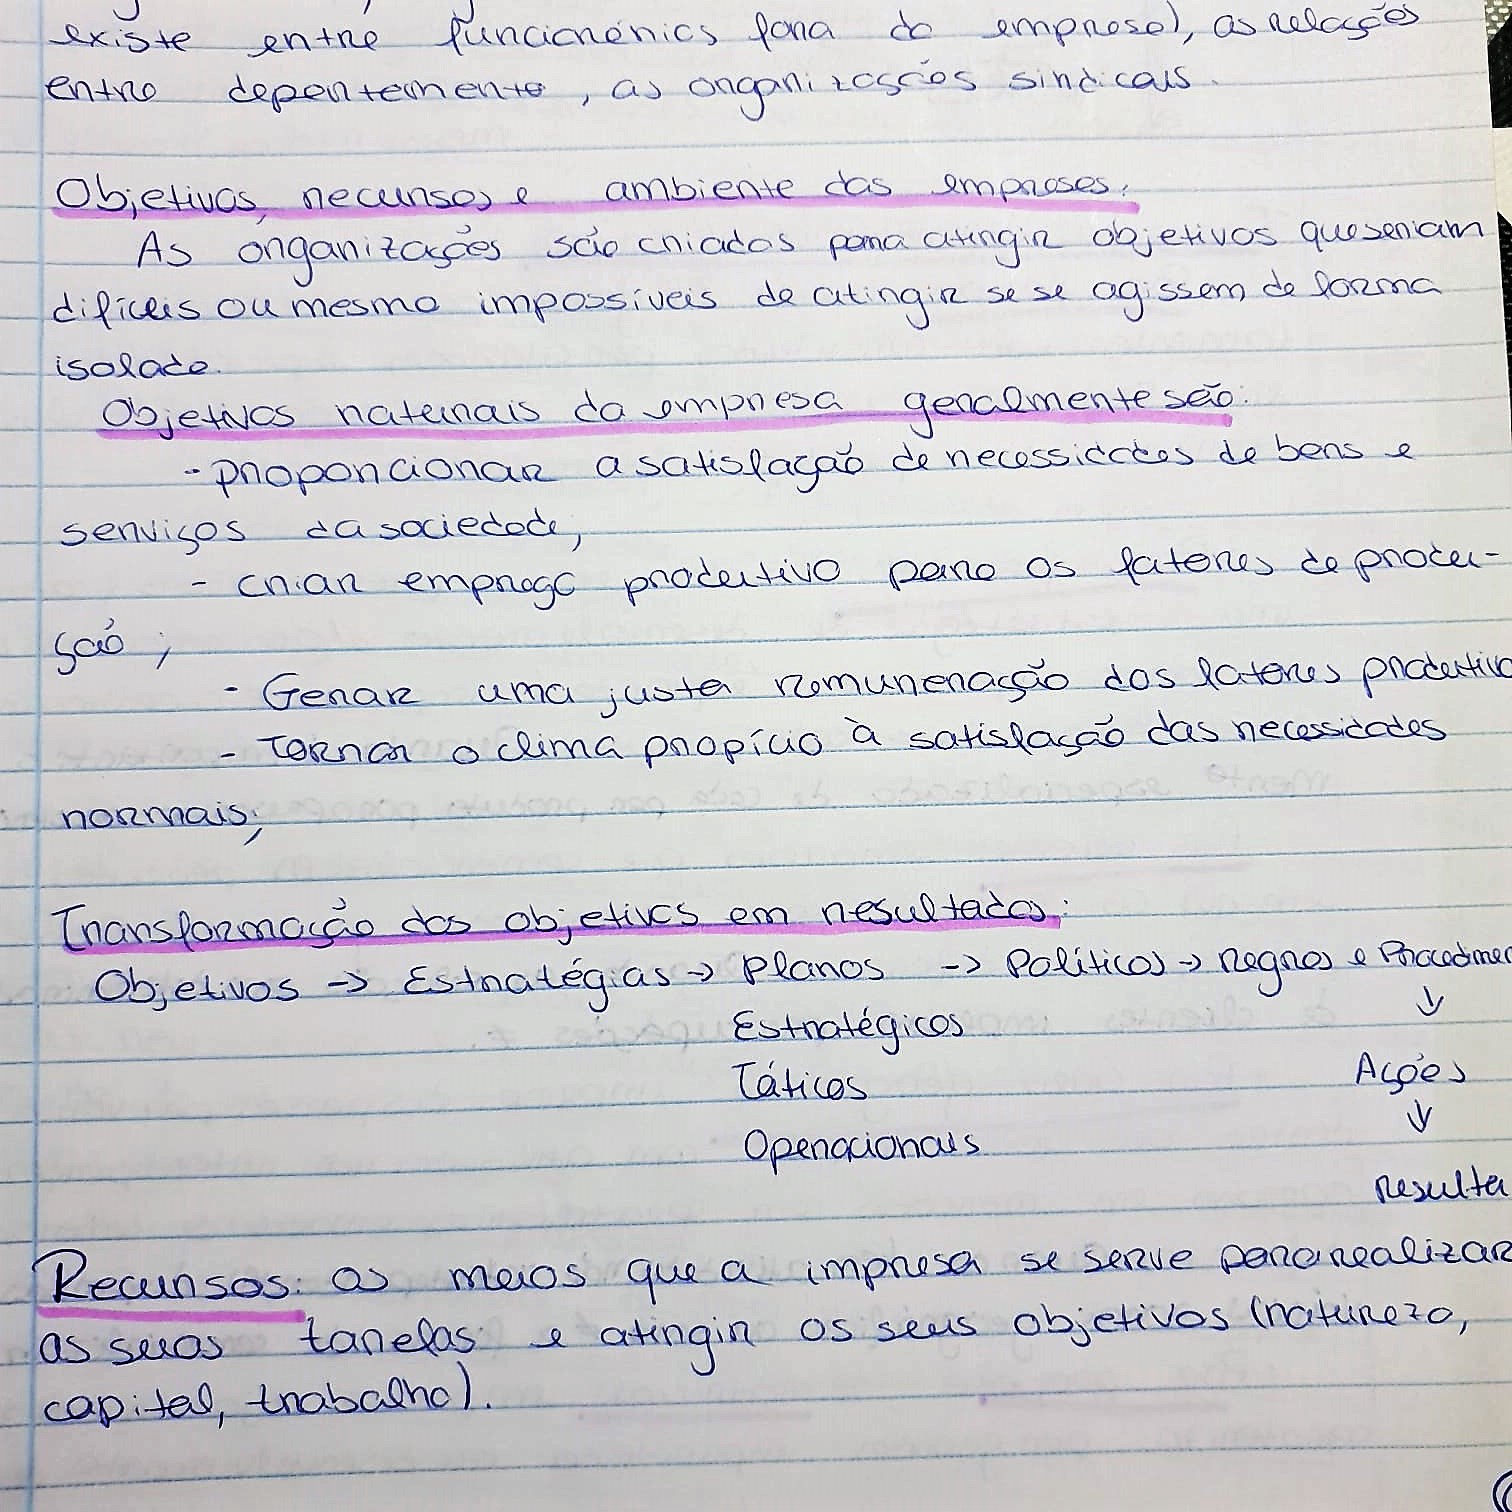 existe entre funcionários fora da empresa), as relações
entre departamento, as organizações sindicais.
Objetivos, recursos e ambiente das empresas:
As organizações são criadas para atingir objetivos que seriam
difíceis ou mesmo impossíveis de atingir se se agissem de forma
isolada.
Objetivos naturais da empresa geralmente são:
- proporcionar a satisfação de necessidades de bens e
serviços da sociedade;
- criar emprego produtivo para os fatores de produ-
ção;
- Gerar uma justa remuneração dos fatores produtivo
- Tornar o clima propício à satisfação das necessidades
normais;
Transformação dos objetivos em resultados:
Objetivos -> Estratégias -> Planos -> Políticas -> Regras e Procedimen
Estratégicos ↓
Táticos Ações
↓
Operacionais
resulta
Recursos: os meios que a impresa se serve para realizar
as suas tarefas e atingir os seus objetivos (natureza,
capital, trabalho).